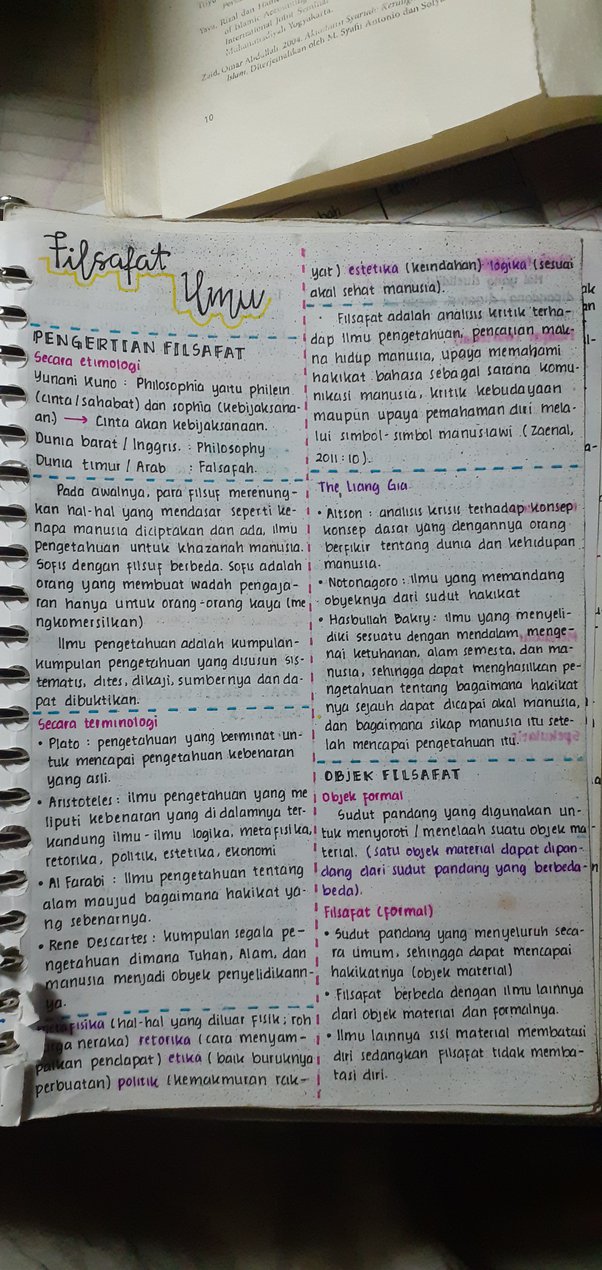 Yaya, Rizal dan
of Islamic Accounting
International Jurnal
Muhammadiyah Yogyakarta.
Zaid, Omar Abdullah. 2004. Akuntansi Syariah: Kerangka
Islam. Diterjemahkan oleh M. Syafii Antonio dan
10
Filsafat
Ilmu
PENGERTIAN FILSAFAT
Secara etimologi
Yunani Kuno : Philosophia yaitu philein
(cinta/sahabat) dan sophia (kebijaksana-
an.) → Cinta akan kebijaksanaan.
Dunia barat / Inggris. : Philosophy
Dunia timur / Arab : Falsafah.
Pada awalnya, para filsuf merenung-
kan hal-hal yang mendasar seperti ke-
napa manusia diciptakan dan ada, ilmu
pengetahuan untuk khazanah manusia.
Sofis dengan filsuf berbeda. Sofis adalah
orang yang membuat wadah pengaja-
ran hanya untuk orang-orang kaya (me
ngkomersilkan)
Ilmu pengetahuan adalah kumpulan-
kumpulan pengetahuan yang disusun sis-
tematis, dites, dikaji, sumbernya dan da-
pat dibuktikan.
Secara terminologi
• Plato : pengetahuan yang berminat un-
tuk mencapai pengetahuan kebenaran
yang asli.
• Aristoteles : ilmu pengetahuan yang me
liputi kebenaran yang didalamnya ter-
kandung ilmu-ilmu logika, metafisika,
retorika, politik, estetika, ekonomi
• Al Farabi : Ilmu pengetahuan tentang
alam maujud bagaimana hakikat ya-
ng sebenarnya.
• Rene Descartes : kumpulan segala pe-
ngetahuan dimana Tuhan, Alam, dan
manusia menjadi obyek penyelidikann-
ya.
metafisika (hal-hal yang diluar fisik; roh
neraka) retorika (cara menyam-
paikan pendapat) etika (baik buruknya
perbuatan) politik (kemakmuran rak-
yat) estetika (keindahan) logika (sesuai
akal sehat manusia).
Filsafat adalah analisis kritik terha-
dap ilmu pengetahuan, pencarian mak-
na hidup manusia, upaya memahami
hakikat bahasa sebagai sarana komu-
nikasi manusia, kritik kebudayaan
maupun upaya pemahaman diri mela-
lui simbol-simbol manusiawi (Zaenal,
2011:10).
The Liang Gia
• Altson : analisis krisis terhadap konsep
konsep dasar yang dengannya orang
berfikir tentang dunia dan kehidupan
manusia.
• Notonagoro : ilmu yang memandang
obyeknya dari sudut hakikat
• Hasbullah Bakry : ilmu yang menyeli-
diki sesuatu dengan mendalam menge-
nai ketuhanan, alam semesta, dan ma-
nusia, sehingga dapat menghasilkan pe-
ngetahuan tentang bagaimana hakikat
nya sejauh dapat dicapai akal manusia,
dan bagaimana sikap manusia itu sete-
lah mencapai pengetahuan itu.
OBJEK FILSAFAT
Objek formal
Sudut pandang yang digunakan un-
tuk menyoroti / menelaah suatu objek ma-
terial. (satu objek material dapat dipan-
dang dari sudut pandang yang berbeda-
beda).
Filsafat (formal)
• Sudut pandang yang menyeluruh seca-
ra umum, sehingga dapat mencapai
hakikatnya (objek material)
• Filsafat berbeda dengan ilmu lainnya
dari objek material dan formalnya.
• Ilmu lainnya sisi material membatasi
diri sedangkan filsafat tidak memba-
tasi diri.